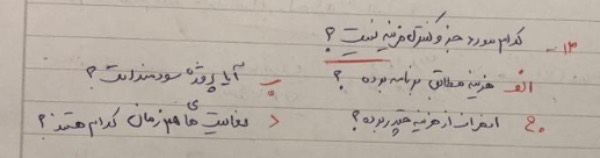 ۱۳- کدام مورد جزو کنترل هزینه نیست؟
الف هزینه مطابق برنامه بوده؟ ب آیا پروژه سودمند است؟
ج انحراف از هزینه چقدر بوده؟ د فعالیت های هم زمان کدام هستند؟